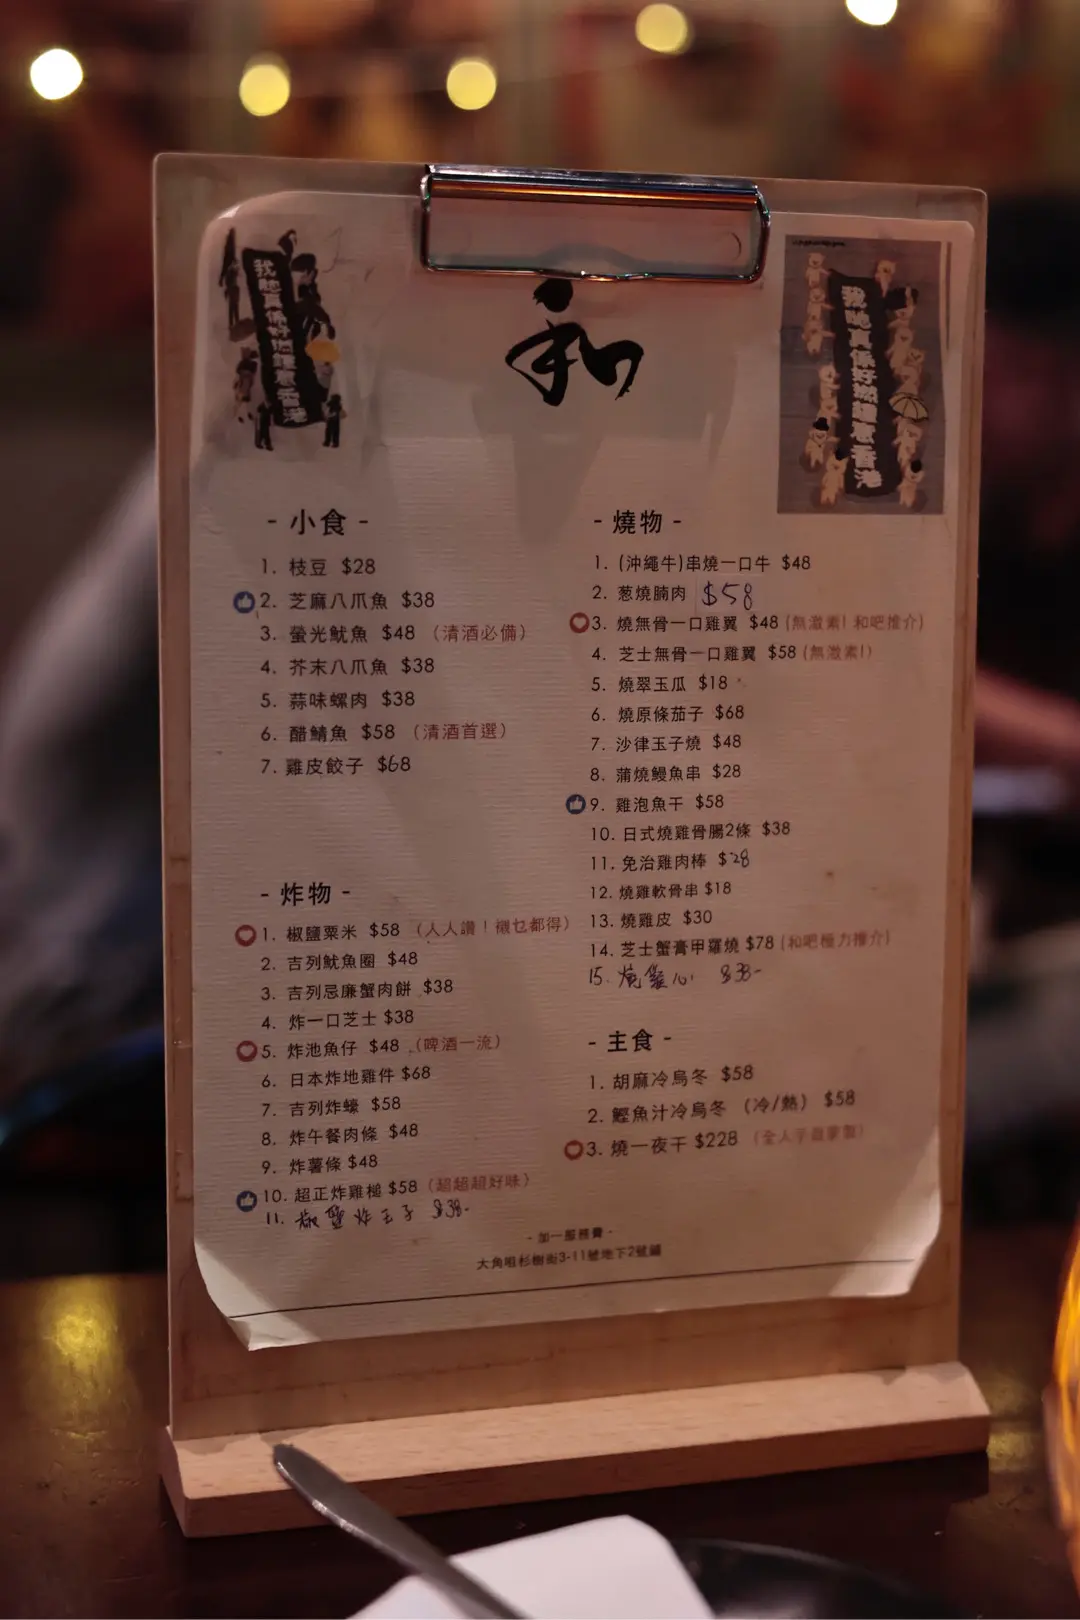 我哋真係好撚鍾意香港
和
我哋真係好撚鍾意香港
- 小食 -
1. 枝豆 $28
2. 芝麻八爪魚 $38
3. 螢光魷魚 $48 (清酒必備)
4. 芥末八爪魚 $38
5. 蒜味螺肉 $38
6. 醋鯖魚 $58 (清酒首選)
7. 雞皮餃子 $68
- 炸物 -
1. 椒鹽粟米 $58 (人人讚！襯乜都得)
2. 吉列魷魚圈 $48
3. 吉列忌廉蟹肉餅 $38
4. 炸一口芝士 $38
5. 炸池魚仔 $48 (啤酒一流)
6. 日本炸地雞件 $68
7. 吉列炸蠔 $58
8. 炸午餐肉條 $48
9. 炸薯條 $48
10. 超正炸雞槌 $58 (超超超好味)
11. 椒鹽炸玉子 $38-
- 燒物 -
1. (沖繩牛)串燒一口牛 $48
2. 葱燒腩肉 $58
3. 燒無骨一口雞翼 $48 (無激素! 和吧推介)
4. 芝士無骨一口雞翼 $58 (無激素!)
5. 燒翠玉瓜 $18
6. 燒原條茄子 $68
7. 沙律玉子燒 $48
8. 蒲燒鰻魚串 $28
9. 雞泡魚干 $58
10. 日式燒雞骨腸2條 $38
11. 免治雞肉棒 $28
12. 燒雞軟骨串 $18
13. 燒雞皮 $30
14. 芝士蟹膏甲羅燒 $78 (和吧極力推介)
15. 燒雞心 $38-
- 主食 -
1. 胡麻冷烏冬 $58
2. 鰹魚汁冷烏冬 (冷/熱) $58
3. 燒一夜干 $228
- 加一服務費 -
大角咀杉樹街3-11號地下2號舖